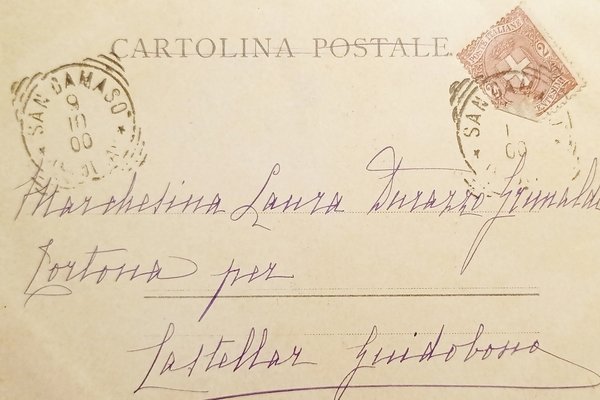 CARTOLINA POSTALE
POSTE ITALIANE
SAN DAMASO
9
10
00
SAN DA
00
Marchesina Laura Durazzo Grimaldi
Tortona per
Castellar Guidobono